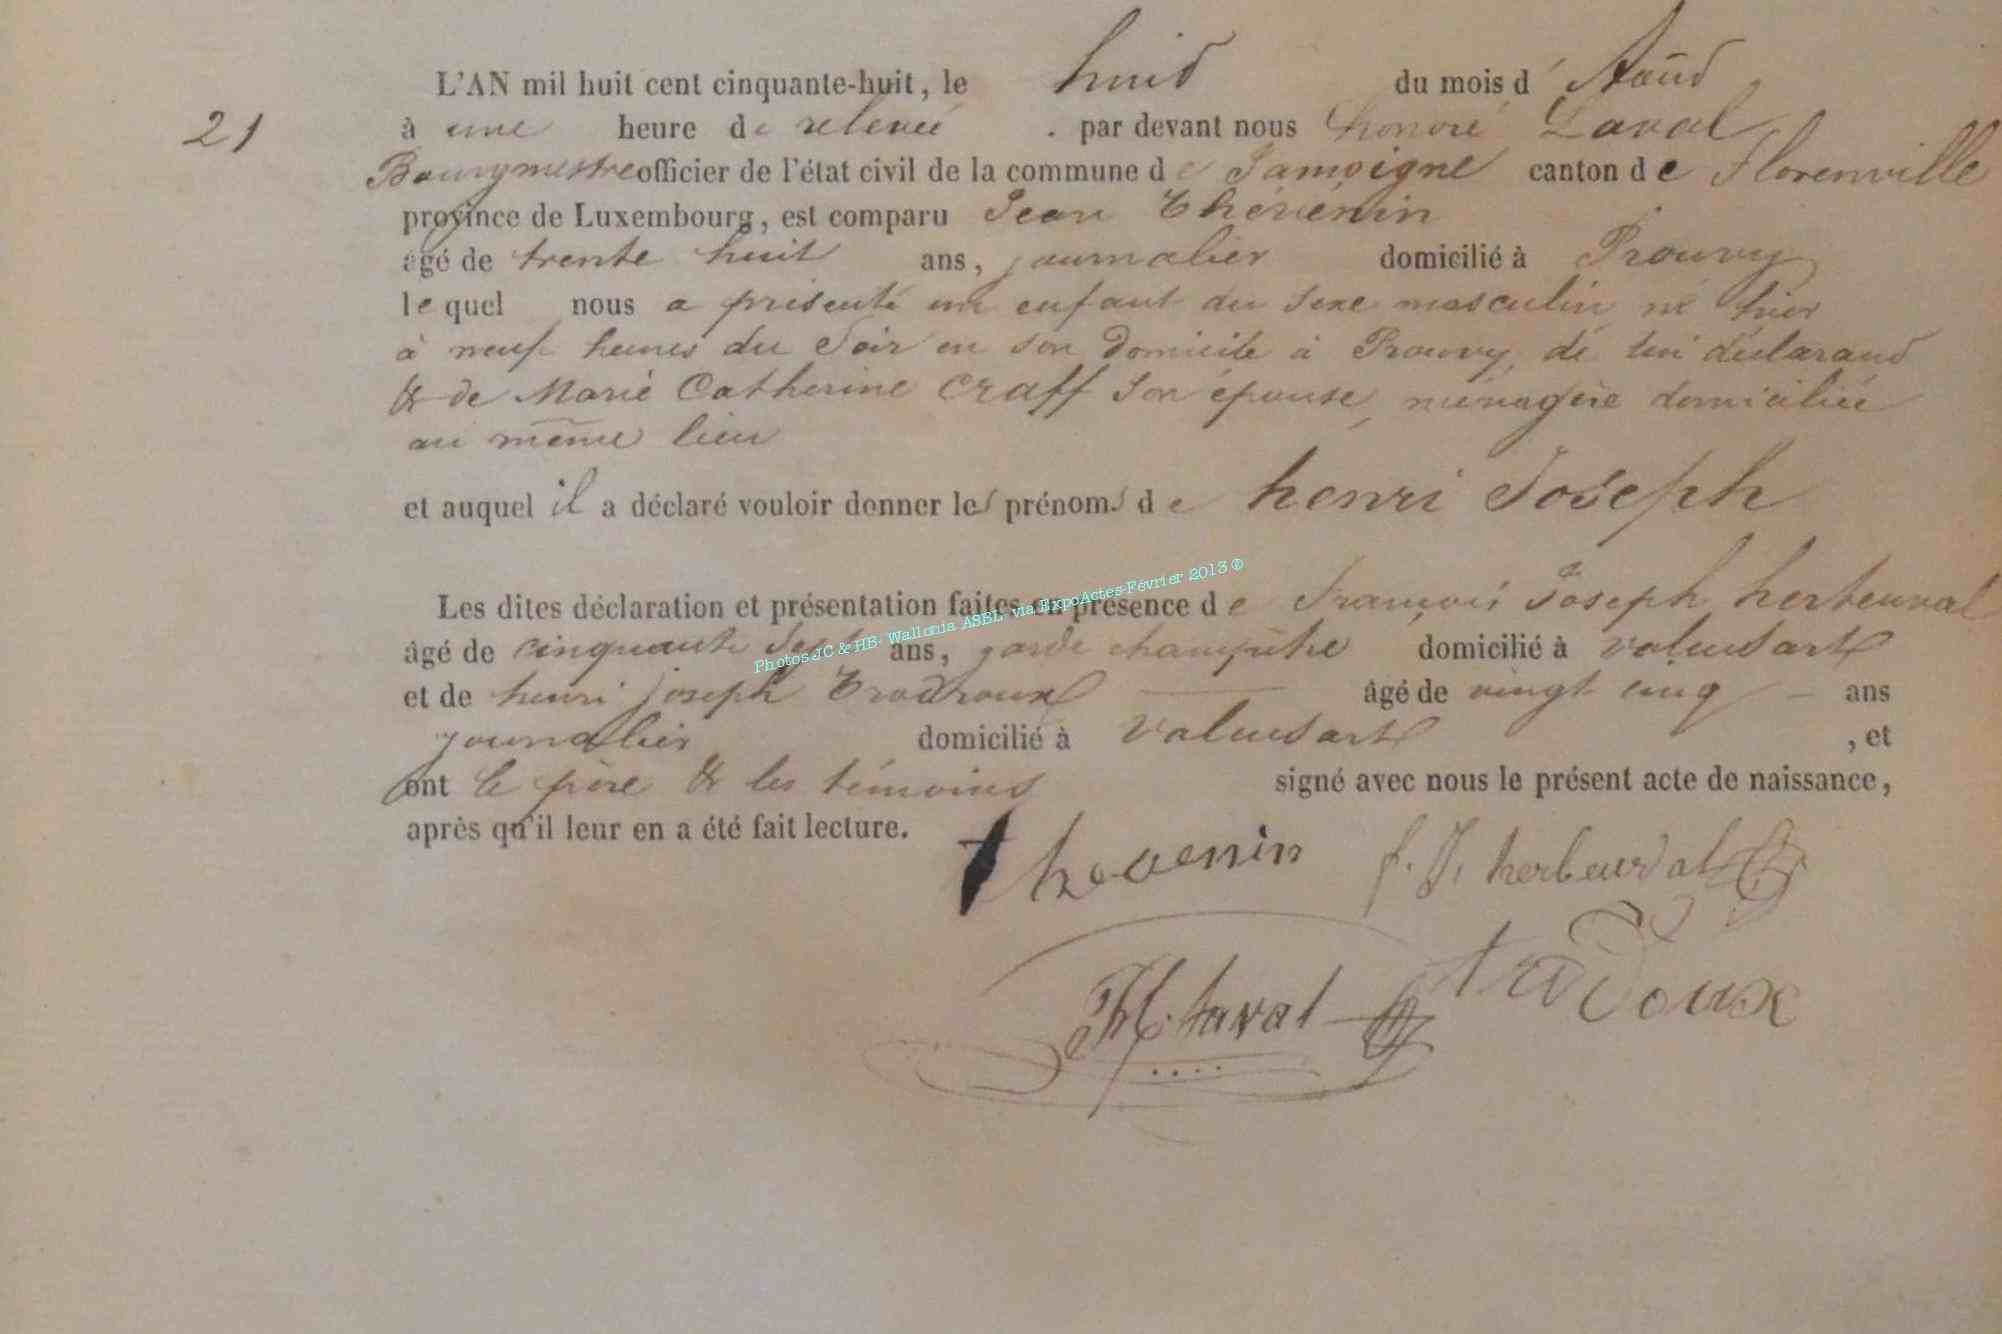 L'AN mil huit cent cinquante-huit, le huid du mois d' Aoûd
21
à une heure de relevée . par devant nous honoré Laval
Bourgmestre officier de l'état civil de la commune de Jamoigne canton de Florenville
province de Luxembourg, est comparu Jean Thévenin
âgé de trente huit ans, journalier domicilié à Prouvy
lequel nous a présenté un enfant du sexe masculin né hier
à neuf heures du Soir en son Domicile à Prouvy, de lui déclarand
& de Marie Catherine Craff son épouse, ménagère domiciliée
au même lieu
et auquel il a déclaré vouloir donner les prénoms de henri Joseph
Les dites déclaration et présentation faites en présence de François Joseph herbeuval
Photos JC & HB. Wallonia ASBL via ExpoActes-Février 2013 ®
âgé de cinquante sept ans, garde champêtre domicilié à valansart
et de henri joseph Tradoux âgé de vingt cinq ans
journalier domicilié à Valansart , et
ont le père & les témoins signé avec nous le présent acte de naissance,
après qu'il leur en a été fait lecture.
thevenin f. J. herbeuval
tradoux
H. Laval